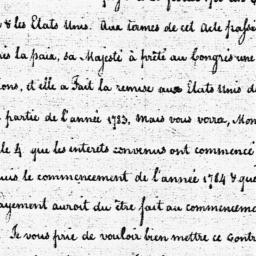 & les Etats Unis. Aux termes de cet Acte passé
la paix, sa Majesté à prêté au Congrès une
ons, et elle a Fait la remise aux Etats Unis d
partie de l'année 1783, mais vous verra, Mon
le 4 que les interets convenus ont commencé
uis le commencement de l'année 1784 & que
ayement auroit du être fait au commenceme
Je vous prie de vouloir bien mettre ce Contr